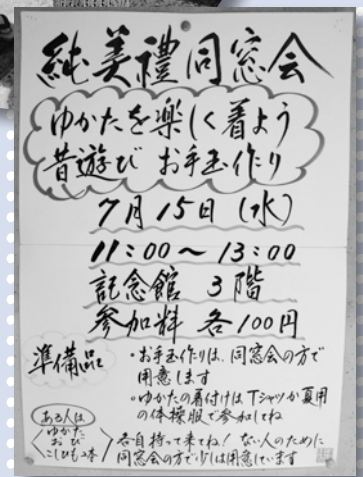 純美禮同窓会
ゆかたを楽しく着よう
昔遊び お手玉作り
7月15日(水)
11:00~13:00
記念館 3階
参加料 各100円
準備品
・お手玉作りは、同窓会の方で
用意します
・ゆかたの着付けはTシャツか夏用
の体操服で参加してね
ある人は
ゆかた
おび
こしひも2本
各自持って来てね! ない人のために
同窓会の方で少しは用意しています